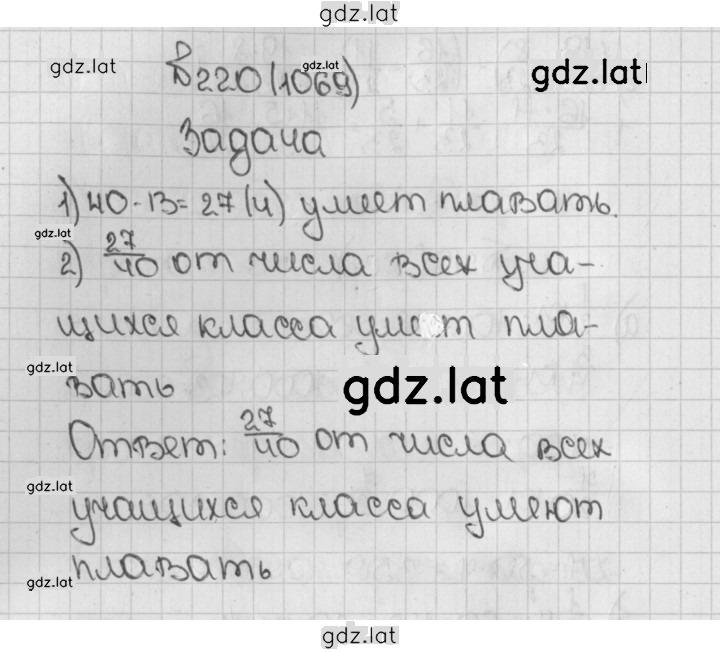 gdz.lat
gdz.lat
gdz.lat
gdz.lat
В220(1069)
Задача
1) 40-13=27(ч) умеет плавать.
gdz.lat
2) 27/40 от числа всех уча-
щихся класса умет пла-
gdz.lat
вать
gdz.lat
Ответ: 27/40 от числа всех
gdz.lat
учащихся класса умеют
gdz.lat
плавать
gdz.lat